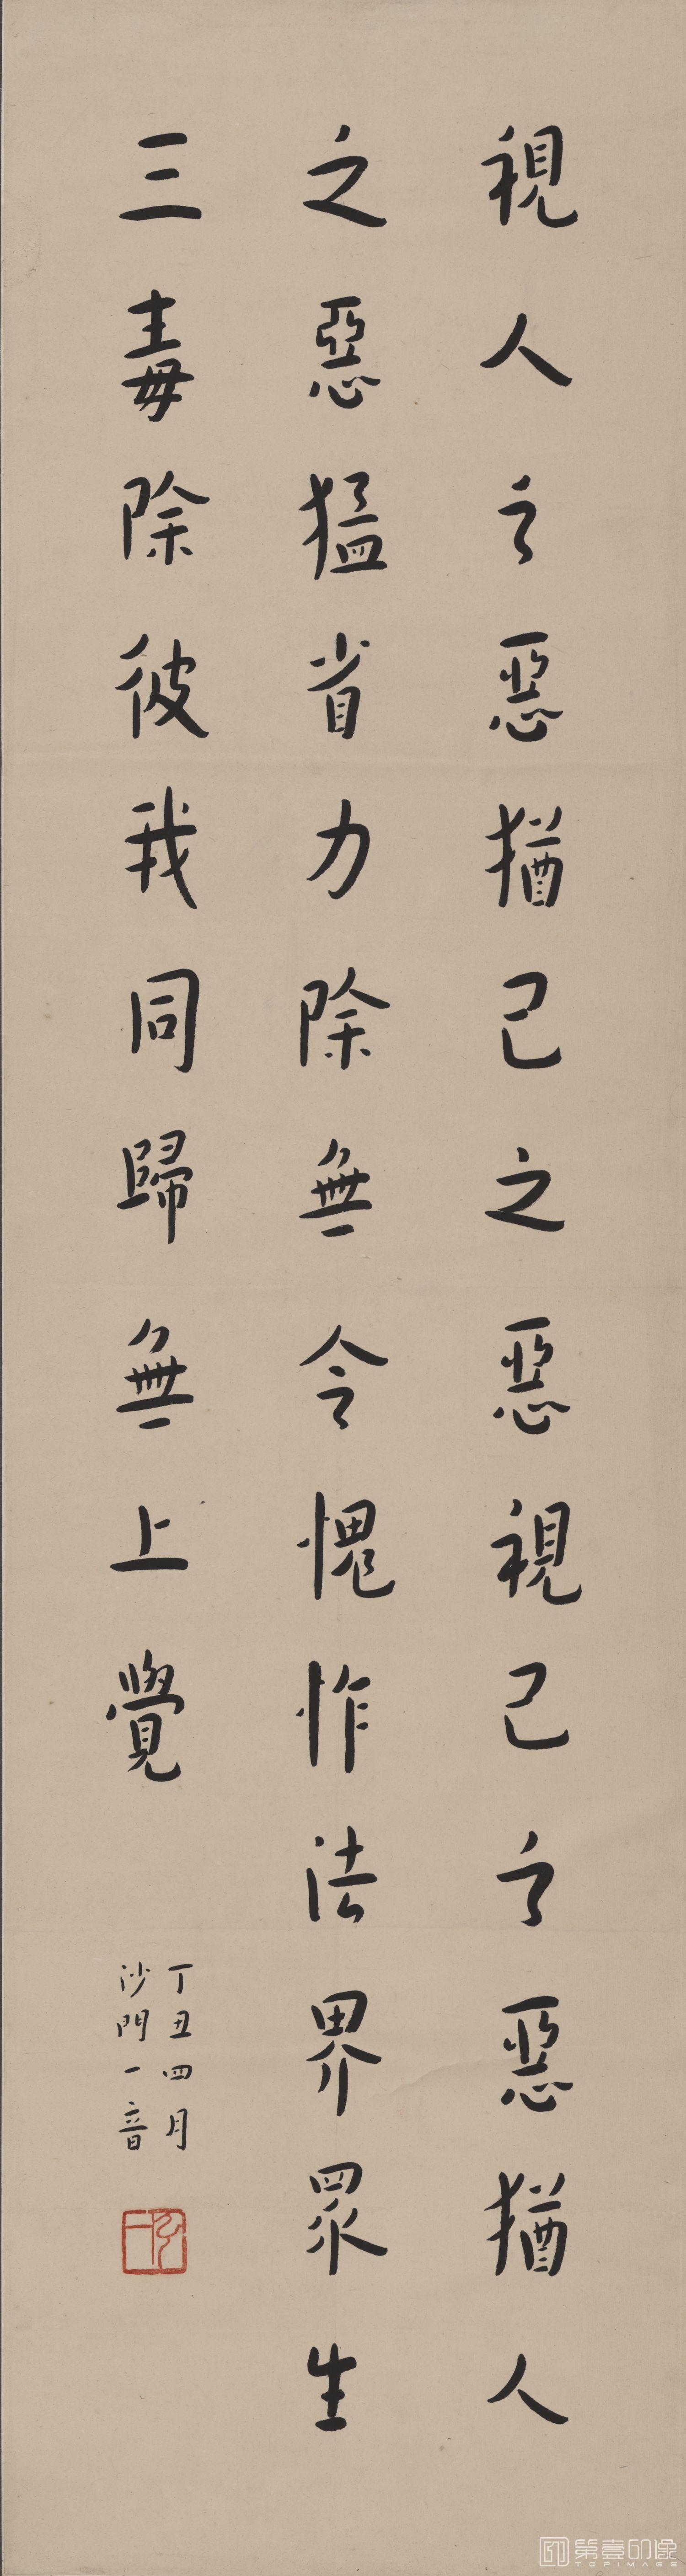 視人之惡猶己之惡視己之惡猶人
之惡猛省力除無令愧怍法界眾生
三毒除彼我同歸無上覺
丁丑四月
沙門一音
第壹印像
TOPIMAGE